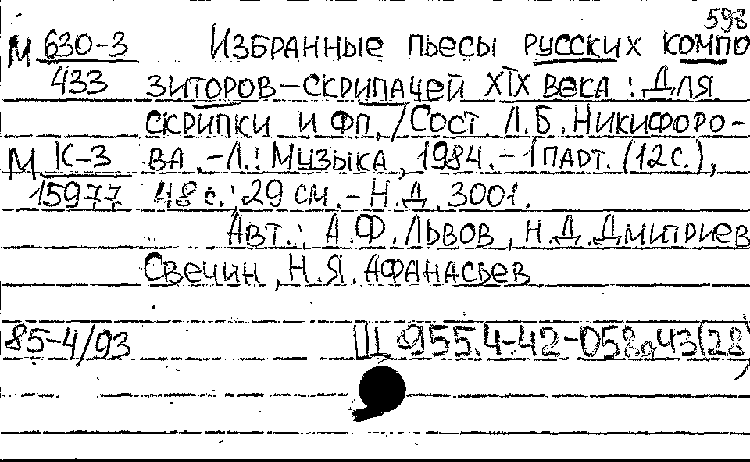 598
М 630-3 Избранные пьесы русских компо
433 зиторов-скрипачей XIX века : Для
скрипки и фп. /Сост. Л.Б.Никифоро-
М К-3 ва .-Л.: Музыка, 1984.-1 парт. (12с.),
15977 48 с.; 29 см.-Н.Д. 3001.
Авт.: А.Ф.Львов, Н.Д.Дмитриев
Свечин, Н.Я.Афанасьев
85-4/93 Щ 955.4-42-058я43(28)